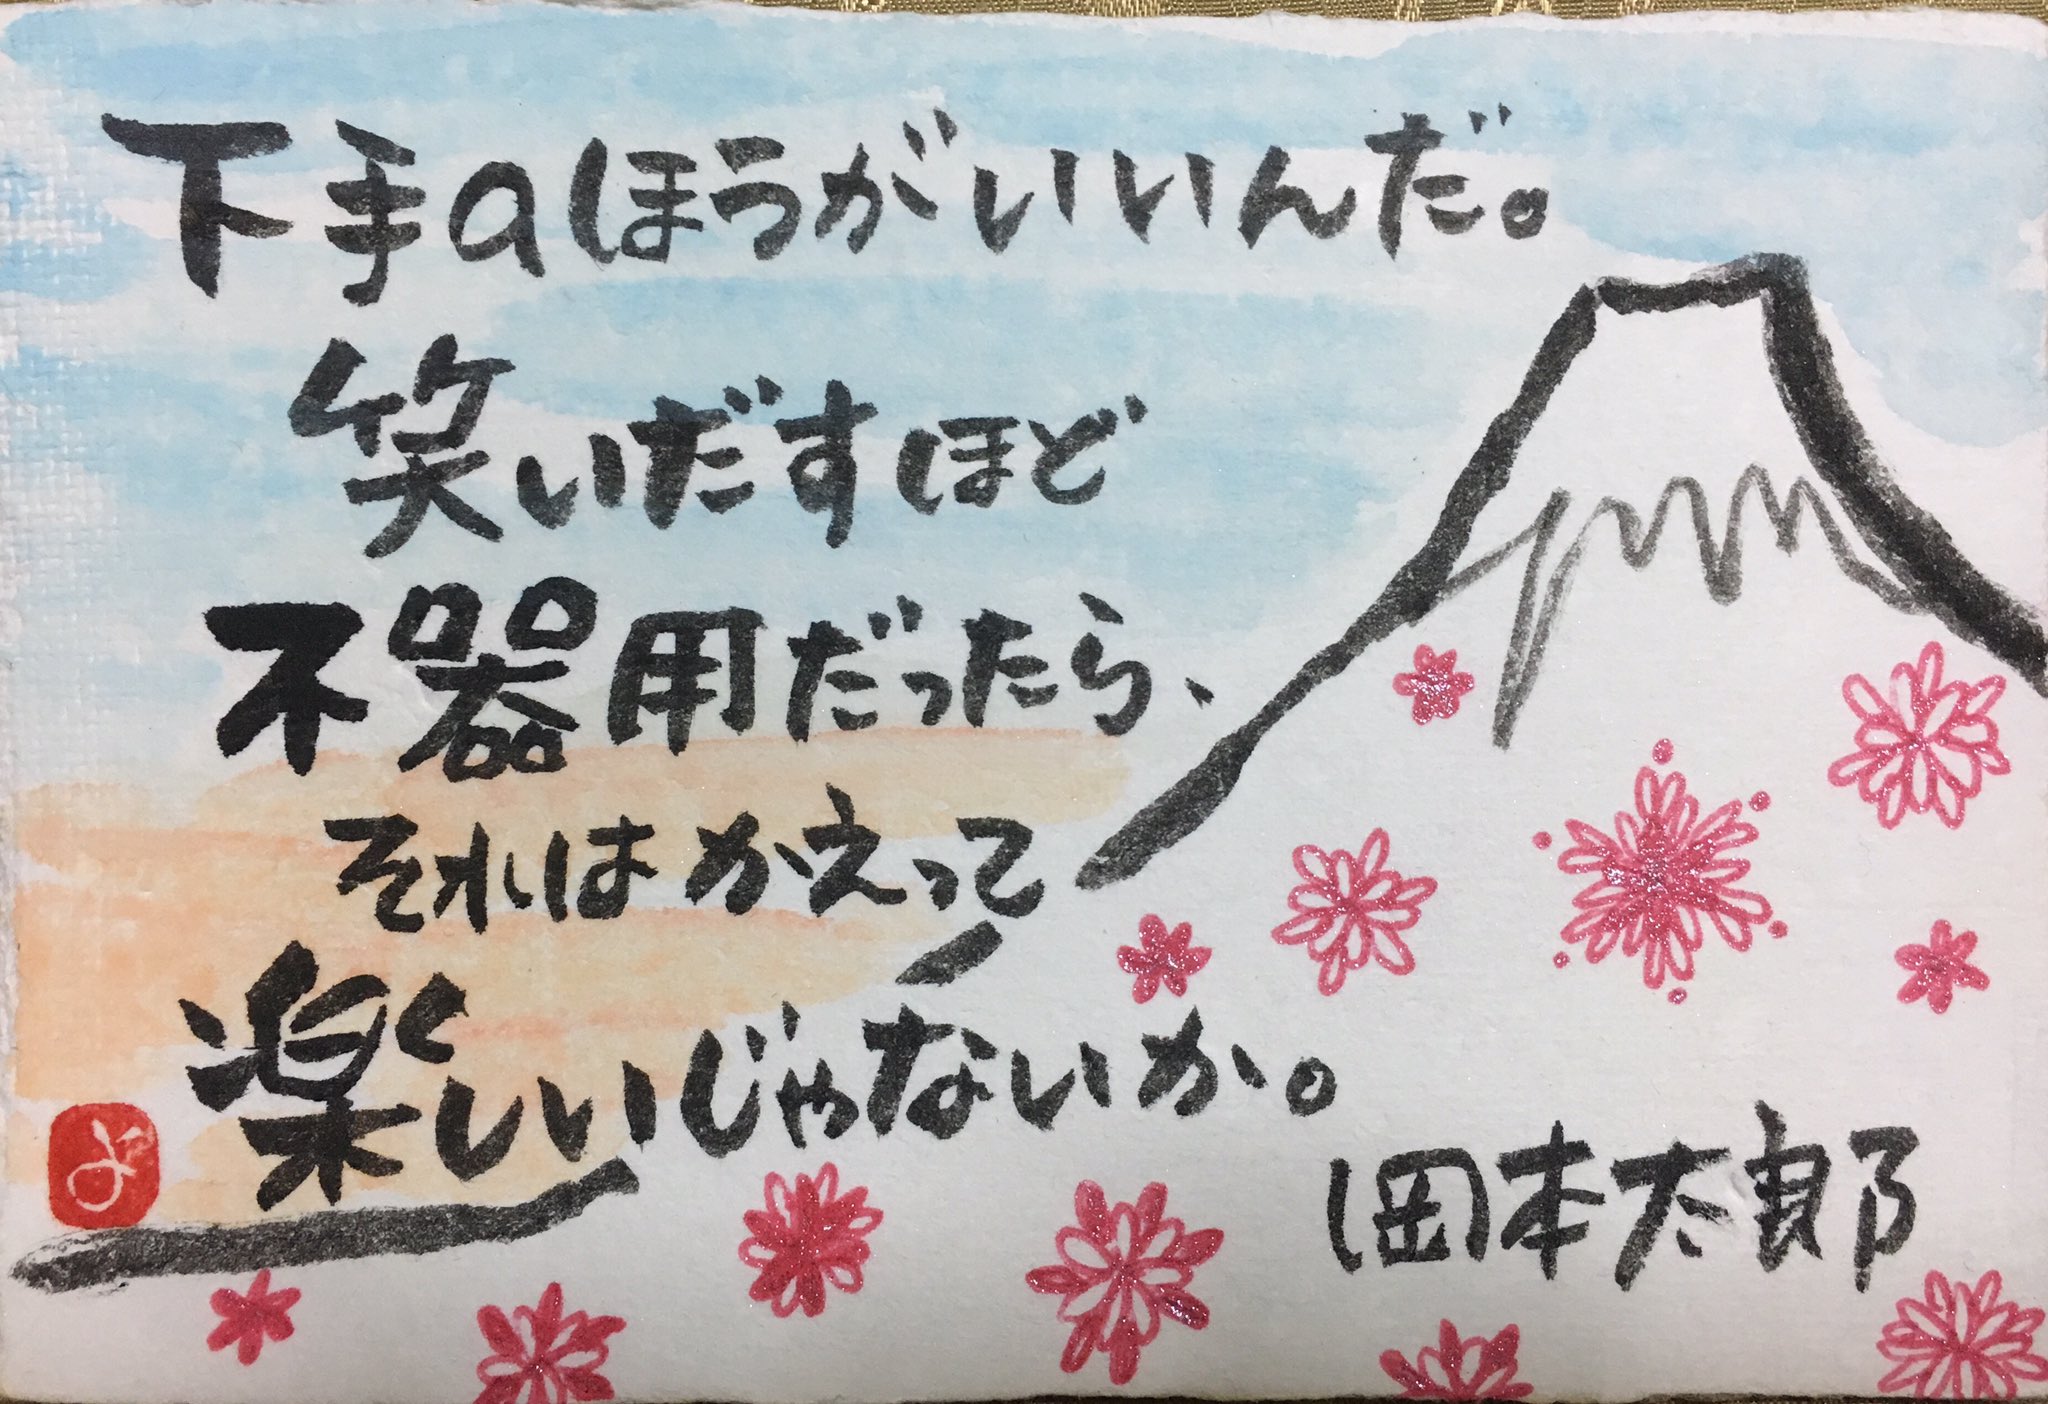 下手のほうがいいんだ。
笑いだすほど
不器用だったら、
それはかえって
楽しいじゃないか。
岡本太郎
よ